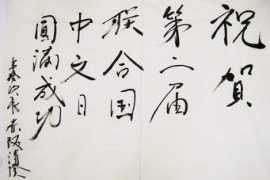 祝賀
第二届
联合国
中文日
圓滿成功